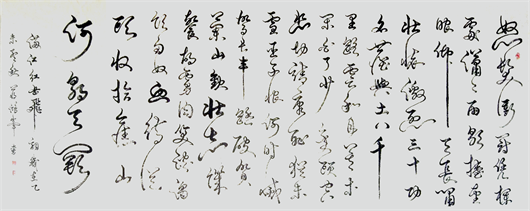 怒髮衝冠憑欄
處瀟瀟雨歇抬望
眼仰天長嘯
壯懷激烈三十功
名塵與土八千
里路雲和月莫等
閒白了少年頭空
悲切靖康恥猶未
雪臣子恨何時滅
駕長車踏破賀
蘭山缺壯志飢
餐胡虜肉笑談渴
飲匈奴血待從
頭收拾舊山
河朝天闕
滿江紅岳飛